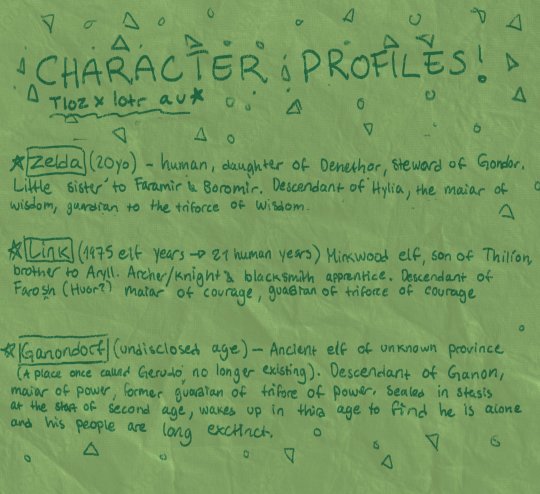 CHARACTER PROFILES!
Tloz x lotr au
Zelda (20yo) - human, daughter of Denethor, steward of Gondor.
Little sister to Faramir & Boromir. Descendant of Hylia, the maiar of
wisdom, guardian to the triforce of wisdom.
Link (1975 elf years → 21 human years) Mirkwood elf, son of Thilion,
brother to Aryll. Archer/Knight & blacksmith apprentice. Descendant of
Farosh (Huor?) maiar of courage, guardian of triforce of courage
Ganondorf (undisclosed age) - Ancient elf of unknown province
(A place once called Gerudo, no longer existing). Descendant of Ganon,
maiar of power, former guardian of trifore of power. Sealed in stasis
at the start of second age, wakes up in third age to find he is alone
and his people are long exctinct.